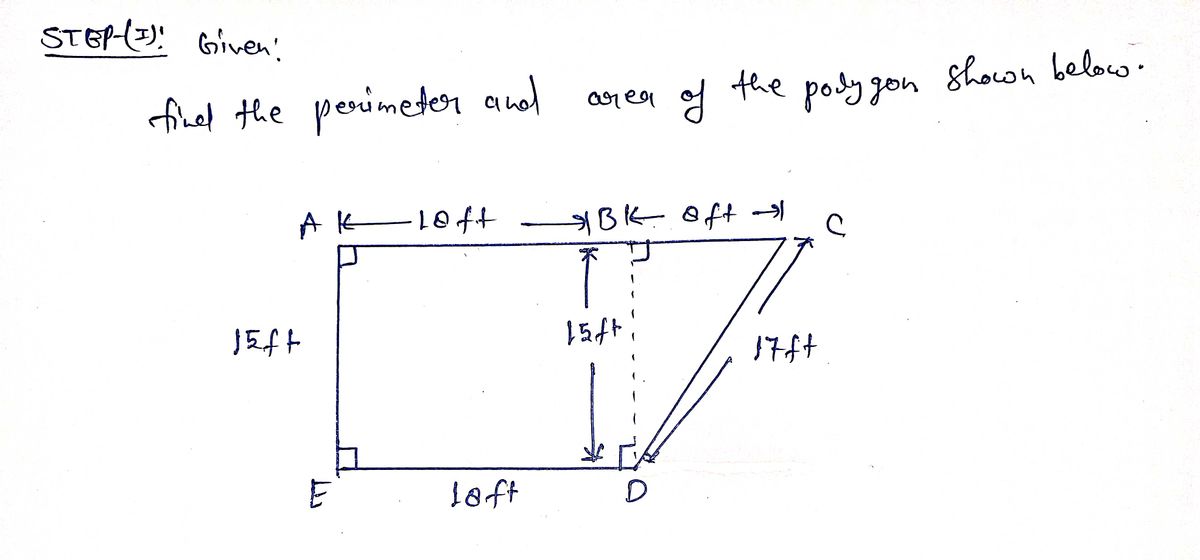 STEP-(I): Given:
find the perimeter and area of the polygon shown below.
A 18ft B 8ft C
15ft 15ft 17ft
E 18ft D